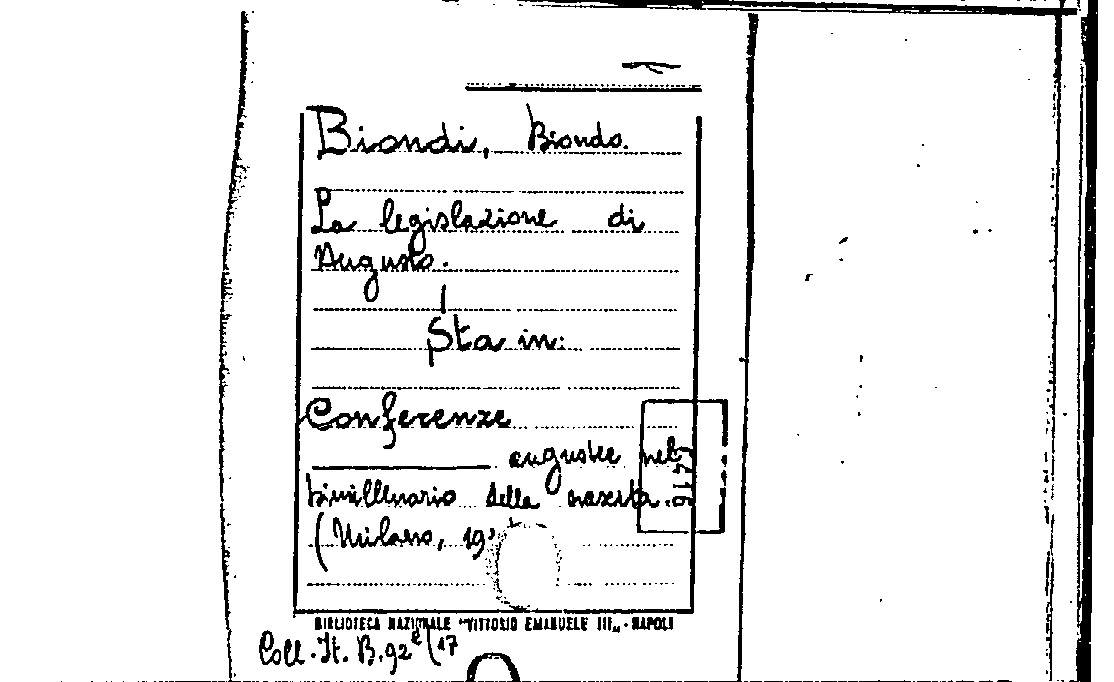 Biondi, Biondo.
La legislazione di
Augusto.
Sta in:
Conferenze
augustee nel
bimillenario della nascita.
(Milano, 19
5416
BIBLIOTECA NAZIONALE "VITTORIO EMANUELE III" - NAPOLI
Coll. It. B. 92 e (17